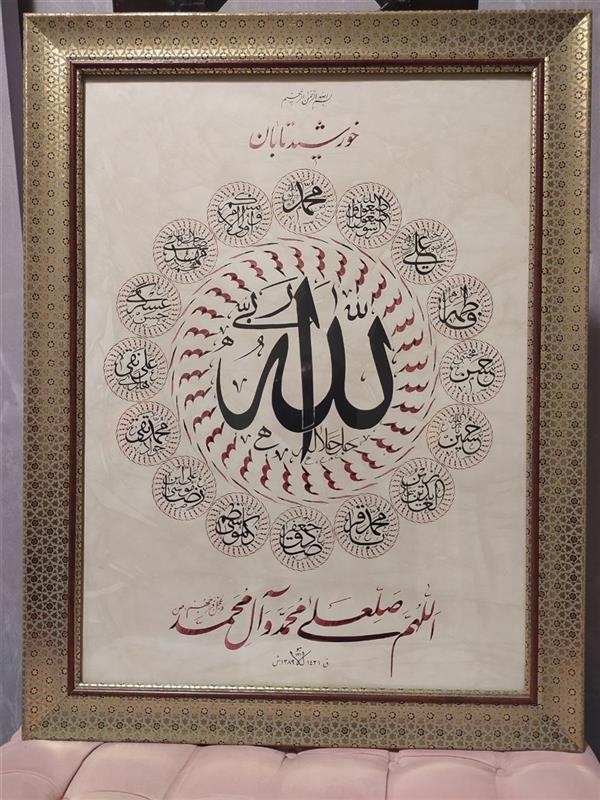 بسم الله الرحمن الرحیم
خورشید تابان
الله
ربی
جل جلاله
محمد
علی
فاطمه
حسن
حسین
زین العابدین
محمد باقر
جعفر صادق
موسی کاظم
علی ابن موسی رضا
محمد تقی
علی نقی
حسن عسکری
مهدی
اللهم صل علی محمد وآل محمد
وعجل فرجهم
ق ۱۴۳۱ ۱۳۸۹ ش